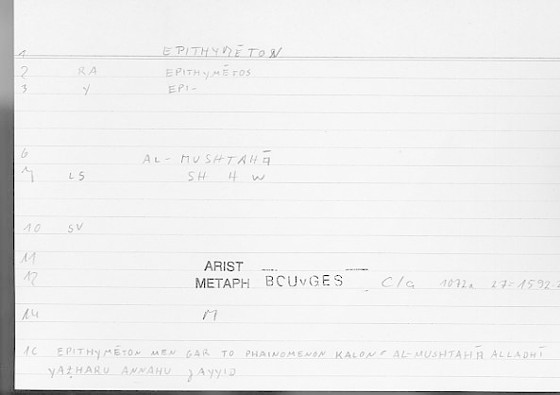 1 EPITHYMĒTON
2 RA EPITHYMĒTOS
3 Y EPI-
6 AL- MUSHTAHĀ
7 LS SH H W
10 SV
11 ARIST
12 METAPH BOUvGES C/G 1072a 27=1592.2
14 M
16 EPITHYMĒTON MEN GAR TO PHAINOMENON KALON: AL-MUSHTAHĀ ALLADHĪ
YAẒHARU ANNAHU JAYYID